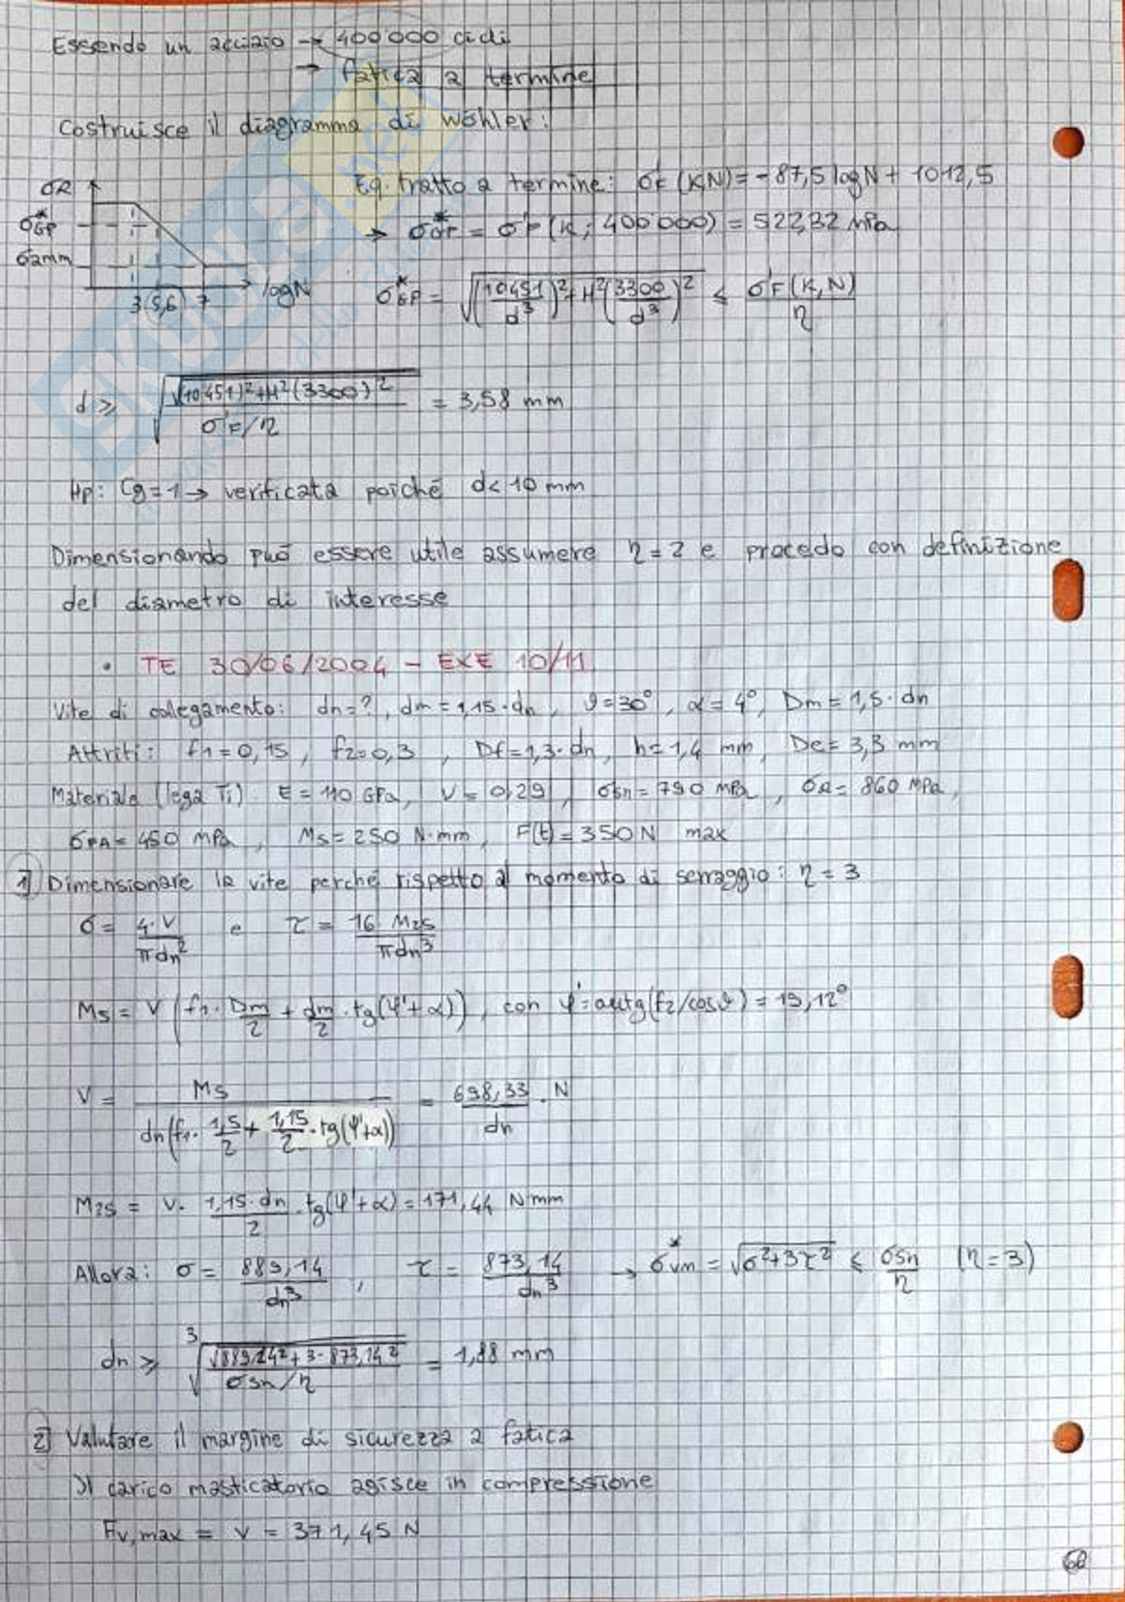 Essendo un acciaio → 400 000 cicli
→ fatica a termine
Costruisce il diagramma di Wöhler:
Eq. tratto a termine: σ'F (K,N) = -87,5 logN + 1012,5
→ σ*GP = σ'F (K; 400'000) = 522,32 MPa
σR
σ*GP
σ2mm
3 5,6 7 logN
σ*GP = √((10451/d³)² + H²(3300/d³)²) ≤ σ'F(K,N)/η
d ≥ √(√((10451)²+H²(3300)²)/(σ'F/η)) = 3,58 mm
Hp: Cg = 1 → verificata poiché d < 10 mm
Dimensionando può essere utile assumere η = 2 e procedo con definizione
del diametro di interesse
• TE 30/06/2004 - EXE 10/11
Vite di collegamento: dn = ?, dm = 1,15·dn, ϑ = 30°, α = 4°, Dm = 1,5·dn
Attriti: f1 = 0,15, f2 = 0,3, Df = 1,3·dn, h = 1,4 mm, De = 3,3 mm
Materiale (lega Ti): E = 110 GPa, ν = 0,29, σsn = 790 MPa, σR = 860 MPa,
σFA = 450 MPa, Ms = 250 N·mm, F(t) = 350 N max
1) Dimensionare la vite perché rispetto al momento di serraggio: η = 3
σ = 4·V/πdn² e τ = 16 M2s/πdn³
Ms = V (f1·Dm/2 + dm/2·tg(φ'+α)), con φ' = arctg(f2/cosϑ) = 19,12°
V = Ms/(dn(f1·1,5/2 + 1,15/2·tg(φ'+α))) = 698,33/dn · N
M2s = V·1,15·dn/2·tg(φ'+α) = 171,44 N mm
Allora: σ = 889,14/dn³, τ = 873,14/dn³ → σ*VM = √(σ²+3τ²) ≤ σsn/η (η = 3)
dn ≥ ³√(√(889,14²+3·873,14²)/(σsn/η)) = 1,88 mm
2) Valutare il margine di sicurezza a fatica
Il carico masticatorio agisce in compressione
Fv,max = V = 371,45 N
68